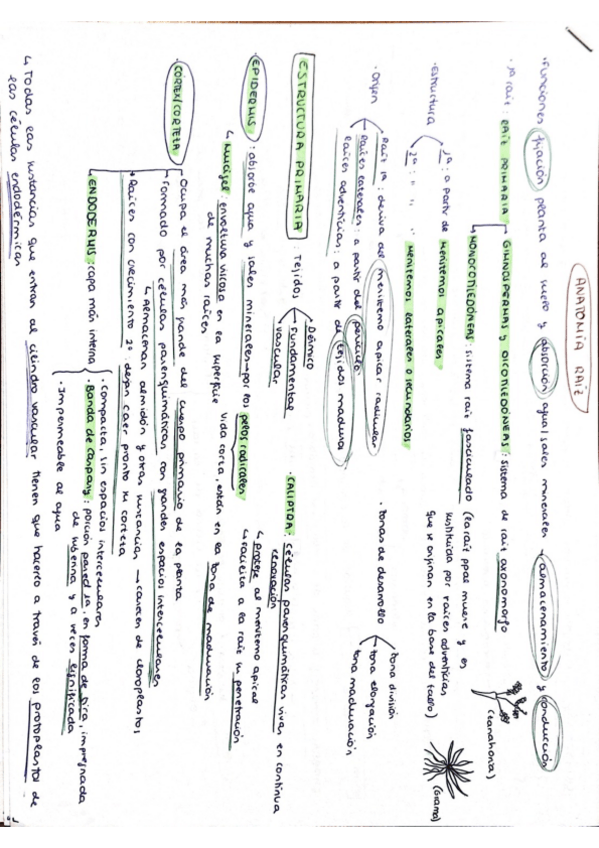 ANATOMÍA RAÍZ
·Funciones: fijación planta al suelo y absorción agua/sales minerales → almacenamiento y conducción
·1ª raíz: RAÍZ PRIMARIA → GIMNOSPERMAS Y DICOTILEDÓNEAS: sistema de raíz axonomorfo (zanahoria)
MONOCOTILEDÓNEAS: sistema raíz fasciculado (la raíz ppal muere y es
sustituida por raíces adventicias
que se originan en la base del tallo) (Grama)
·Estructura 1ª: a partir de meristemos apicales
2ª: " " " meristemos laterales o secundarios
·Origen Raíz 1ª: deriva del meristemo apical radicular
Raíces laterales: a partir del periciclo
Raíces adventicias: a partir de tejidos maduros
·Zonas de desarrollo zona división
zona elongación
zona maduración
ESTRUCTURA PRIMARIA: Tejidos Dérmico
Fundamental
vascular
·CALIPTRA: células parenquimáticas vivas en continua
renovación
↳ protege al meristemo apical
↳ facilita a la raíz su penetración
·EPIDERMIS: absorbe agua y sales minerales → por los pelos radicales
↳ vida corta, están en la zona de maduración
↳ Mucigel: envoltura viscosa en la superficie
de muchas raíces
·CÓRTEX/CORTEZA Ocupa el área más grande del cuerpo primario de la planta
Formado por células parenquimáticas con grandes espacios intercelulares
↳ Almacenan almidón y otras sustancias → carecen de cloroplastos
Raíces con crecimiento 2º: dejan caer pronto su corteza
ENDODERMIS: capa más interna
·Compacta, sin espacios intercelulares
·Banda de Caspary: porción pared 1ª, en forma de cinta, impregnada
de suberina y a veces lignificada
·Impermeable al agua
↳ Todas las sustancias que entran al cilindro vascular tienen que hacerlo a través de los protoplastos de
las células endodérmicas